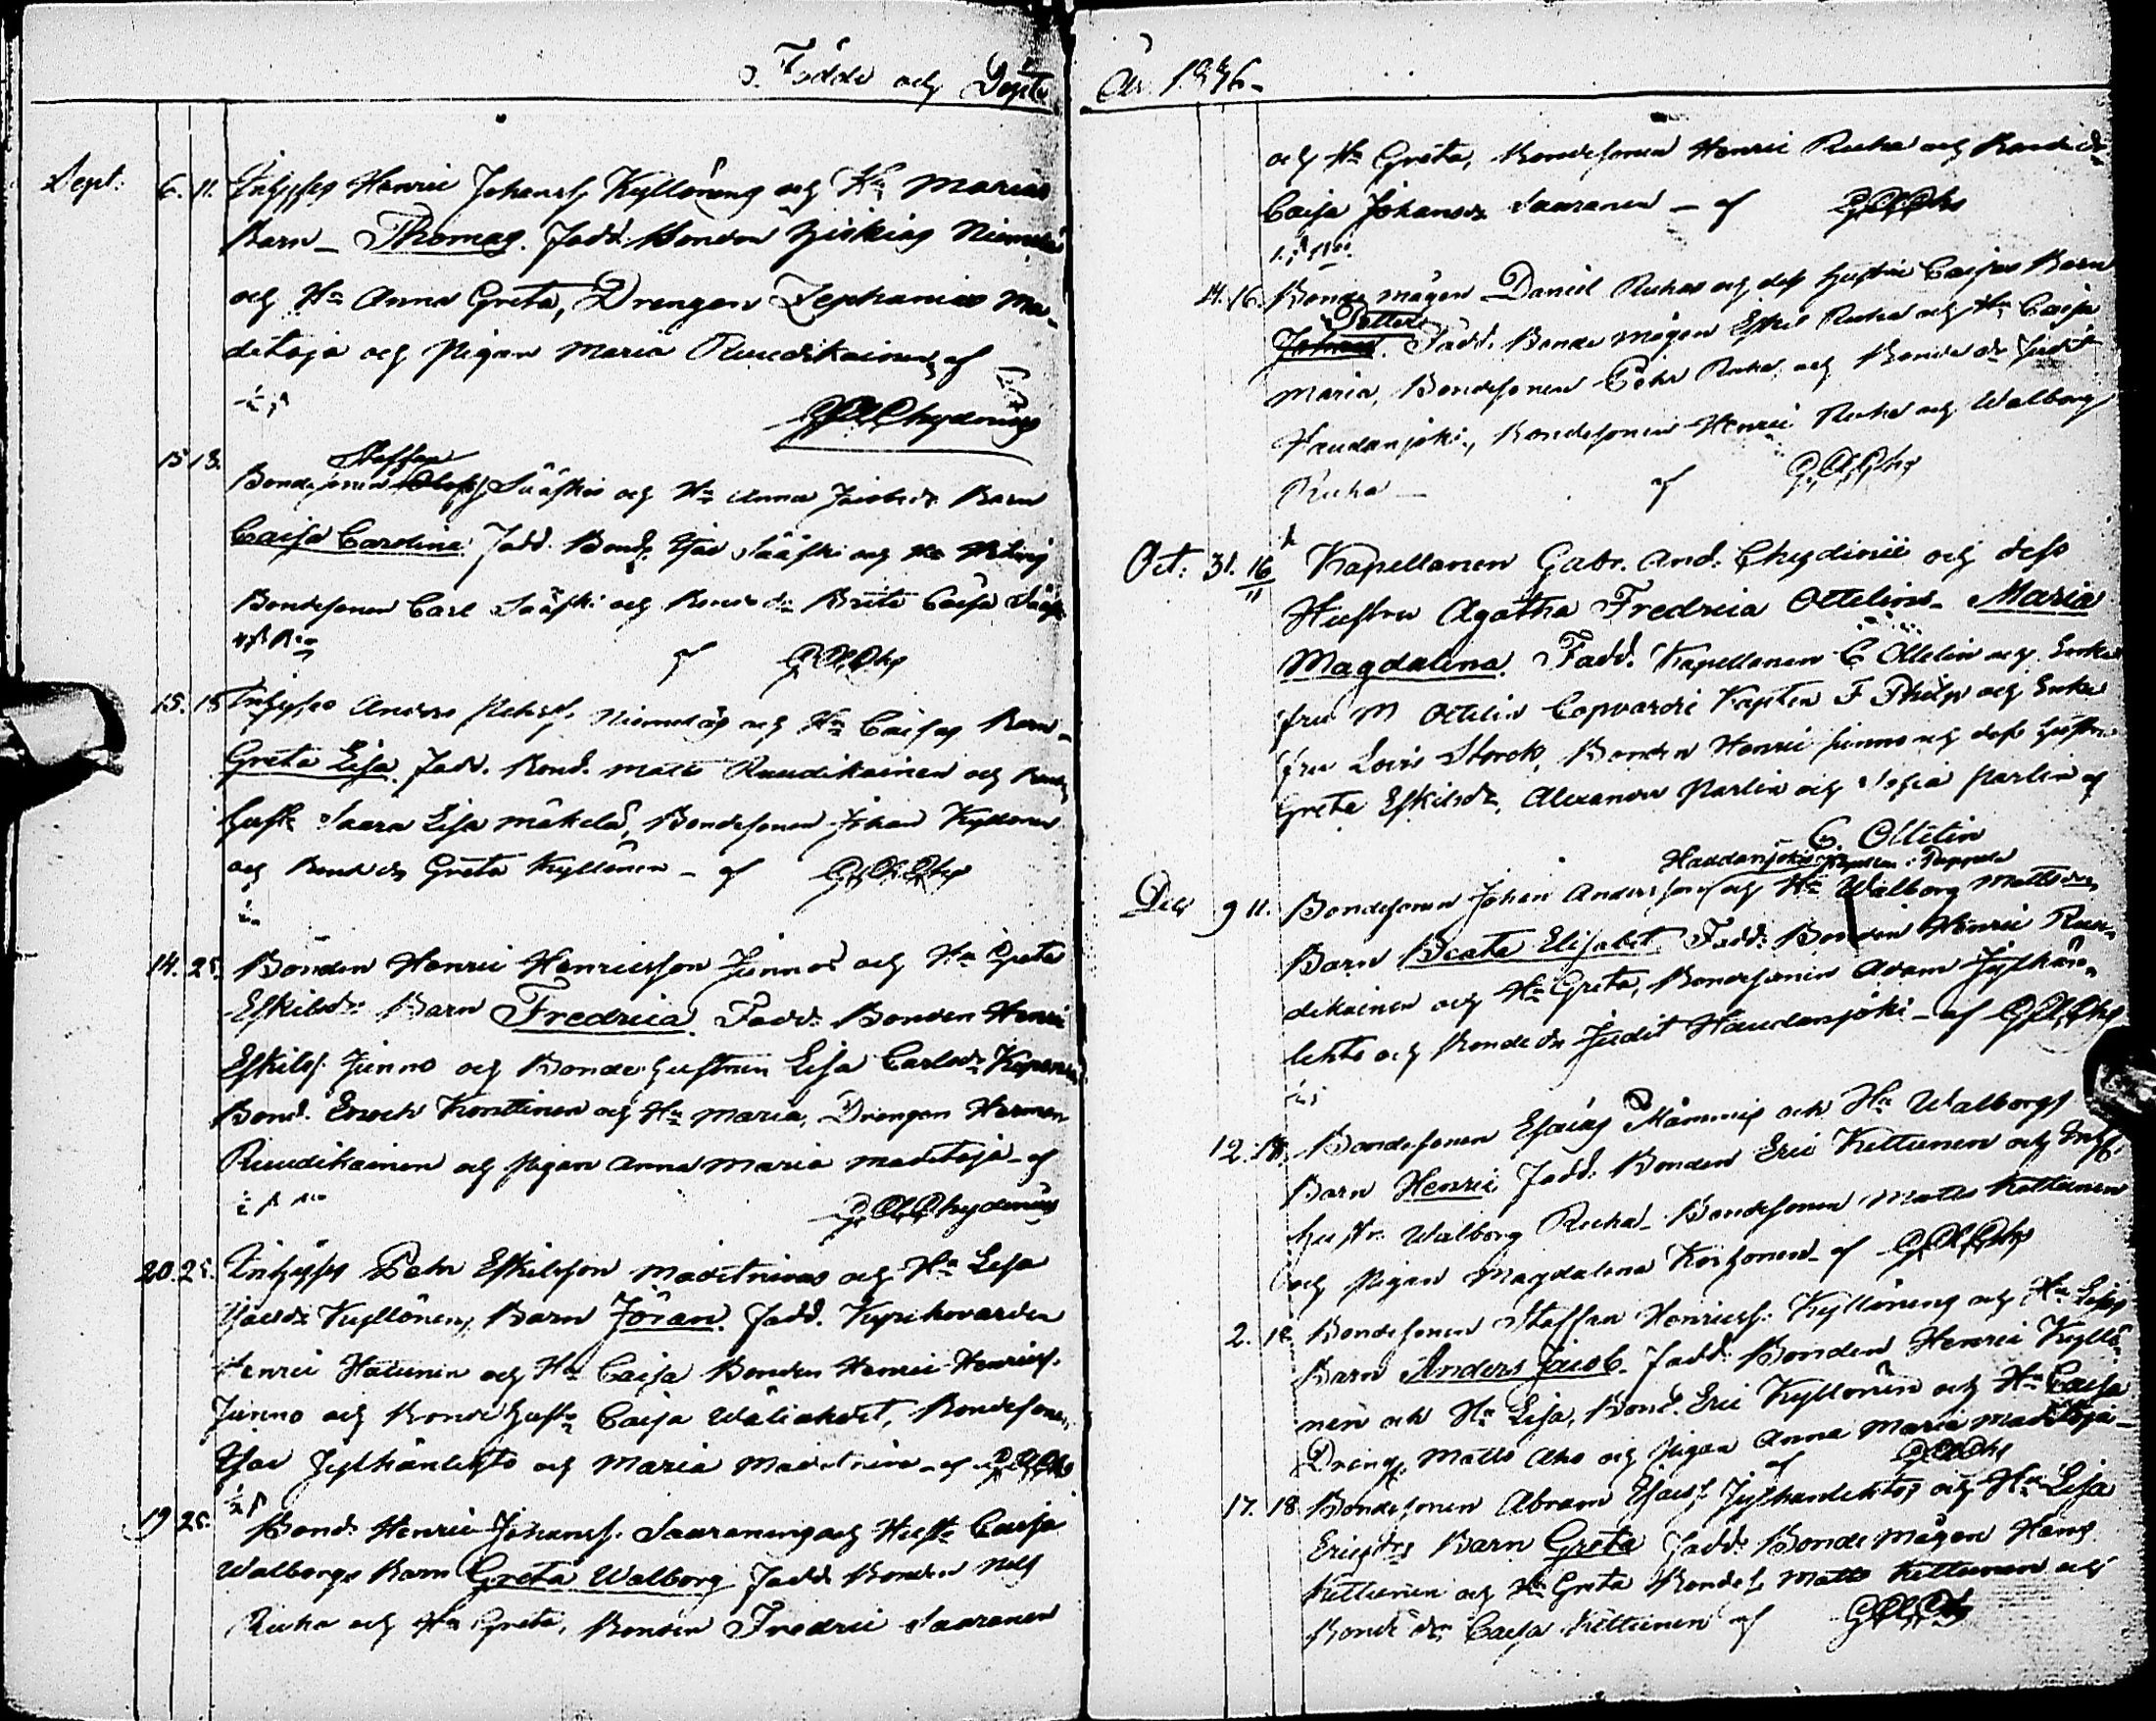 Födde och Döpte
Sept: 6. 11. Inhyses Henric Johanss. Kyllönens och Hu Marias
Barn - Thomas. Fadd. Bonden Zierkias Niemelä
och Hu Anna Greta, Drengen Zephanias Ma-
detoja och Pigan Maria Ruudikainen, af
G A Chydenius
Staffan
15 18. Bondesonen Olofss. Sääskis och Hu Anna Jacobsdr Barn
Caisa Carolina. Fadd. Bond. Isac Sääski och Hu
Bondesonen Carl Sääski och Bonde dr Brita Caisa Sääski
af G A Chs
15. 18 Inhyses Anders Niemeläs och Hu Caisas Barn-
Greta Lisa. Fadd. Bond. Matts Ruudikainen och Bonde
hustr Saara Lisa Mäkelä, Bondesonen Johan Kyllönen
och Bonde dr Greta Kyllönen - af G A Chs
14. 25. Bonden Henric Henricsson Junnos och Hu Greta
Eskilsdr Barn Fredrica. Fadd. Bonden Henric
Eskilss. Junno och Bondehustrun Lisa Carlsdr
Bond. Enoch Konttinen och Hu Maria, Drengen Herman
Ruudikainen och Pigan Anna Maria Madetoja - af
G. A. Chydenius
20. 25. Inhyses Pehr Eskilsson Madetnivas och Hu Lisa
Isacsdr Kyllönens, Barn Jöran. Fadd. Kyrkovärden
Henric Hatunen och Hu Caisa Bonden Henric Henricss.
Junno och Bondehustr Caisa Bondesonen
Isac Jylhänlehto och Maria Madetniva - af G A Chs
19 25. Bond. Henric Johanss. Saaranens och Hustr Caisa
Walborgs Barn Greta Walborg Fadd. Bonden Nils
Ruha och Hu Greta, Bonden Fredric Saaranen
År 1846.
och Hu Greta, Bondesonen Henric Ruha och Bonde dr
Caisa Johansdr Saaranen - af G A Chs
14. 16. Bonde mågen Daniel Ruhas och dess hustru Caisas Barn
Petter
Johan. Fadd. Bonde mågen Eskil Ruha och Hu Caisa
Maria, Bondesonen Pehr Ruha och Bonde dr Judit
Haudanjoki, Bondesonen Henric Ruha och Walborg
Ruha - af G A Chs
Oct: 31. 16/11 Kapellanen Gabr. And. Chydenii och dess
Hustru Agatha Fredrica Ottelins - Maria
Magdalena. Fadd. Kapellanen C Ottelin och Enke
fru M Ottelin Kapten F Philp och Enke
fru Lovis Storck, Bonden Henric Junno och dess hustru
Greta Eskilsdr, Alexander Parlin och Sofia Parlin af
C. Ottelin
Haudanjokis
Dec 9 11. Bondesonen Johan Andersson och Hu Walborg Mattsdrs
Barn Beata Elisabet. Fadd. Bonden Henric Ruu-
dikainen och Hu Greta, Bondesonen Adam Jylhän-
lehto och Bonde dr Judit Haudanjoki - af G A Chs
12. 18. Bondesonen Esaias Mämmis och Hu Walborgs
Barn Henric Fadd. Bonden Eric Kettunen och Inhys.
hustr. Walborg Ruha - Bondesonen Matts Kettunen
och Pigan Magdalena Korhonen - af G A Chs
2. 18. Bondesonen Staffan Henricss. Kyllönens och Hu Lisas
Barn Anders Jacob. Fadd. Bonden Henric Kyllö-
nen och Hu Lisa, Bond. Eric Kyllönen och Hu Caisa
Dreng. Matts Aho och Pigan Anna Maria Madetoja -
af G A Chs
17. 18 Bondesonen Abram Isacss. Jylhänlehtos och Hu Lisa
Ericsdrs Barn Greta Fadd. Bonde mågen Hans
Kettunen och Hu Greta Bondes. Matts Kettunen och
Bonde dr Caisa Kettunen af G A Chs